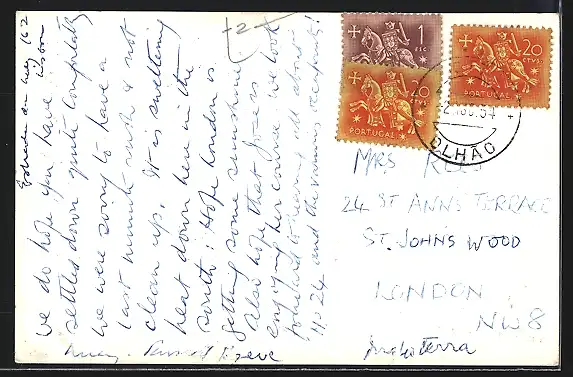 -2-
we do hope you have
settled down quite comfortably
we were sorry to have a
last minute rush & not
clean up. It is sweltering
heat down here in the
south! Hope London is
getting some sunshine.
Also hope that is
enjoying her course. We look
forward to hearing all about
No 24 and the various occupants!
1 ESC
PORTUGAL
20 CTVS
PORTUGAL
20 CTVS
PORTUGAL
OLHÃO
MRS
24 ST ANNS TERRACE
ST. JOHNS WOOD
LONDON
NW8
Inglaterra